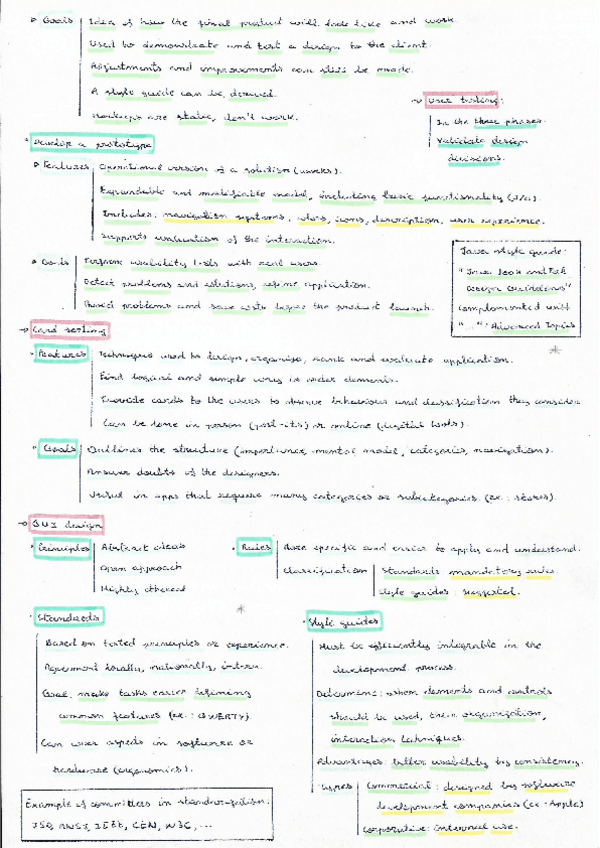 Goals
Idea of how the final product will look like and work.
Used to demonstrate and test a design to the client.
Adjustments and improvements can still be made.
A style guide can be derived.
Mockups are static, don't work.
→ User testing:
In the three phases.
Validate design
decisions.
Develop a prototype
Features
Operational version of a solution (weeks).
Expandable and modifiable model, including basic functionality
Includes: navigation systems, icons, description, user experience.
Supports evaluation of the interaction.
Goals
Perform usability tests with real users.
Detect problems and solutions, refine application.
Avoid problems and save costs before the product launch.
Java style guide.
"Java look and feel
Design Guidelines"
complemented with
"..." Advanced Topics
*
→ Card sorting
Features
Technique used to design, organize, rank and evaluate application.
Find logical and simple way to order elements.
Provide cards to the users to observe behaviour and classification they consider
Can be done in person (post-its) or online (digital tools).
Goals
Outlines the structure (importance, mental model, categories, navigation).
Answer doubts of the designers.
Useful in apps that require many categories or subcategories. (ex.: stores).
→ GUI design
Principles
Abstract ideas
Open approach
Highly coherent
Rules
More specific and easier to apply and understand.
Classification
Standards: mandatory rules.
Style guides: suggested.
Standards
*
Based on tested principles or experience.
Agreement locally, nationally, intern.
Goal: make tasks easier defining
common features (ex.: QWERTY).
Can cover aspects in software or
hardware (ergonomics).
Example of committees in standardization.
ISO, ANSI, IEEE, CEN, W3C, ...
Style guides
Must be efficiently integrable in the
development process.
Determine: when elements and controls
should be used, their organization,
interaction techniques.
Advantages: better usability by consistency.
Types
Commercial: designed by software
development companies (ex.: Apple)
Corporative: internal use.